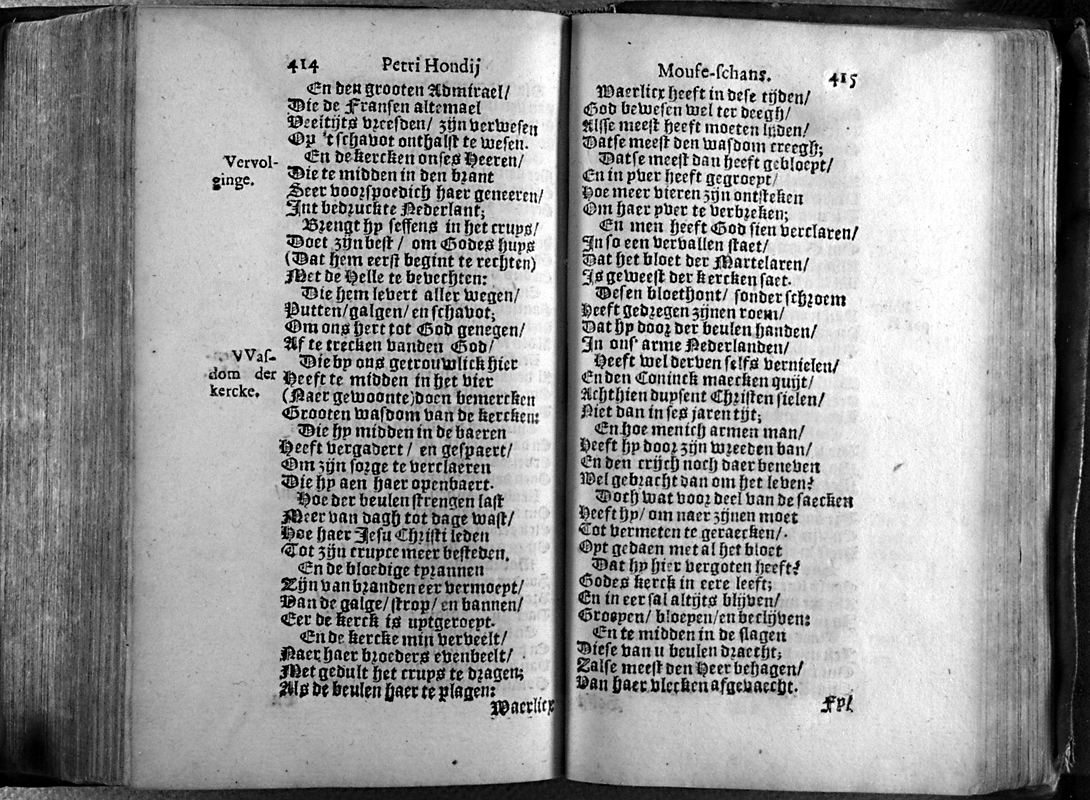 414 Petri Hondij
En den grooten Admirael/
Die de Fransen altemael
Veeltijts vreesden/ zijn verwesen
Op 't schavot onthalst te wesen.
Vervol-
ginge.
En de kercken onses Heeren/
Die te midden in den brant
Seer voorspoedich haer geneeren/
Int bedruckte Nederlant;
Brengt hy seffens in het cruys/
Doet zijn best / om Godes huys
(Dat hem eerst begint te rechten)
Met de Helle te bevechten:
Die hem levert aller wegen/
Putten/galgen/ en schavot;
Om ons hert tot God genegen/
Af te trecken vanden God/
VVas-
dom der
kercke.
Die by ons getrouwlick hier
Heeft te midden in het vier
(Naer gewoonte) doen bemercken
Grooten wasdom van de kercken:
Die hy midden in de baeren
Heeft vergadert/ en gespaert/
Om zijn sorge te verclaeren
Die hy aen haer openbaert.
Hoe der beulen strengen last
Meer van dagh tot dage wast/
Hoe haer Jesu Christi leden
Tot zijn cruyce meer besteden.
En de bloedige tyrannen
Zijn van branden eer vermoeyt/
Van de galge/ strop/ en bannen/
Eer de kerck is uytgeroeyt.
En de kercke min verveelt/
Naer haer broeders evenbeelt/
Met gedult het cruys te dragen;
Als de beulen haer te plagen:
Waerlicx
Mouse-schans. 415
Waerlicx heeft in dese tijden/
God bewesen wel ter deegh/
Alsse meest heeft moeten lijden/
Datse meest den wasdom creegh;
Datse meest dan heeft gebloeyt/
En in yver heeft gegroeyt/
Hoe meer vieren zijn ontsteken
Om haer yver te verbreken;
En men heeft God sien verclaren/
In so een vervallen staet/
Dat het bloet der Martelaren/
Is geweest der kercken saet.
Desen bloethont/ sonder schroem
Heeft gedregen zijnen roem/
Dat hy door der beulen handen/
In ons' arme Nederlanden/
Heeft wel derven selfs vernielen/
En den Coninck maecken quijt/
Achthien duysent Christen sielen/
Niet dan in ses jaren tijt;
En hoe menich armen man/
Heeft hy door zijn wreeden ban/
En den crijch noch daer beneven
Wel gebracht dan om het leven?
Doch wat voordeel van de saecken
Heeft hy/ om naer zijnen moet
Tot vermeten te geraecken/
Oyt gedaen met al het bloet
Dat hy hier vergoten heeft?
Godes kerck in eere leeft;
En in eer sal altijts blijven/
Groeyen/ bloeyen/ en beclijven:
En te midden in de slagen
Diese van u beulen draecht;
Zalse meest den Heer behagen/
Van haer vlecken afgevaecht.